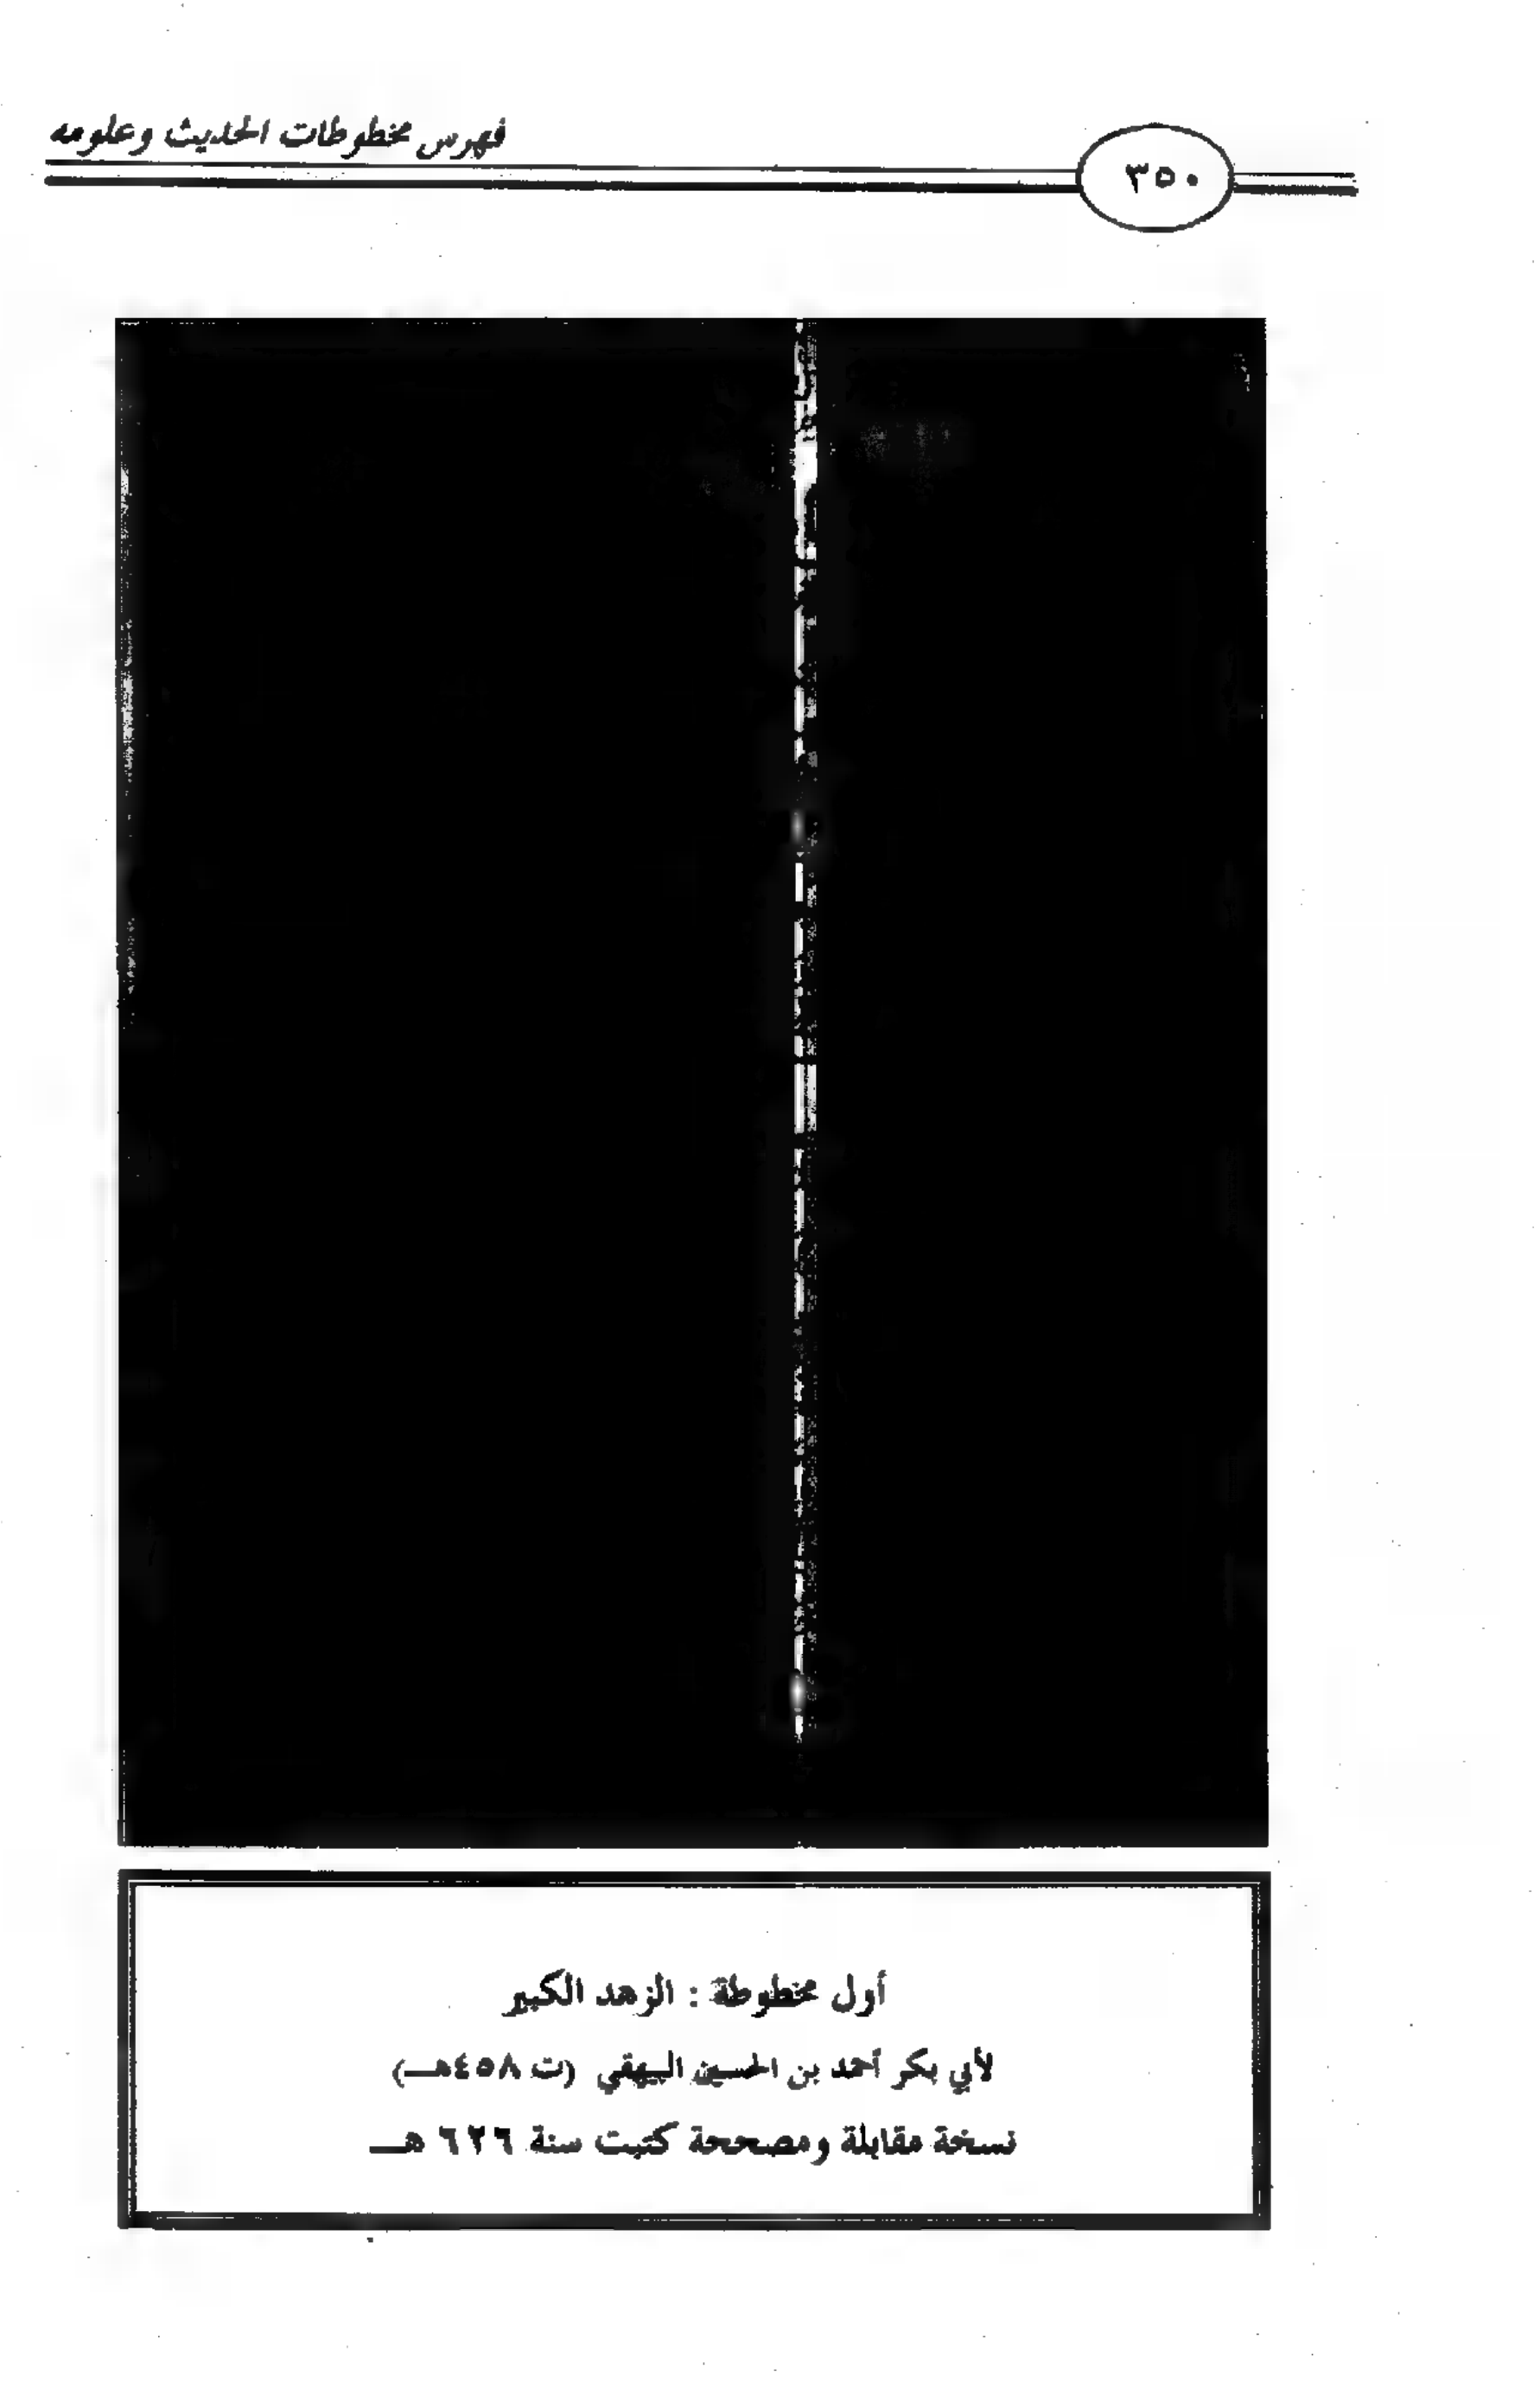 فهرس مخطوطات الحديث وعلومه
٣٥٠
أول مخطوطة : الزهد الكبير
لأبي بكر أحمد بن الحسين البيهقي (ت ٤٥٨هـ)
نسخة مقابلة ومصححة كتبت سنة ٦٢٦ هـ